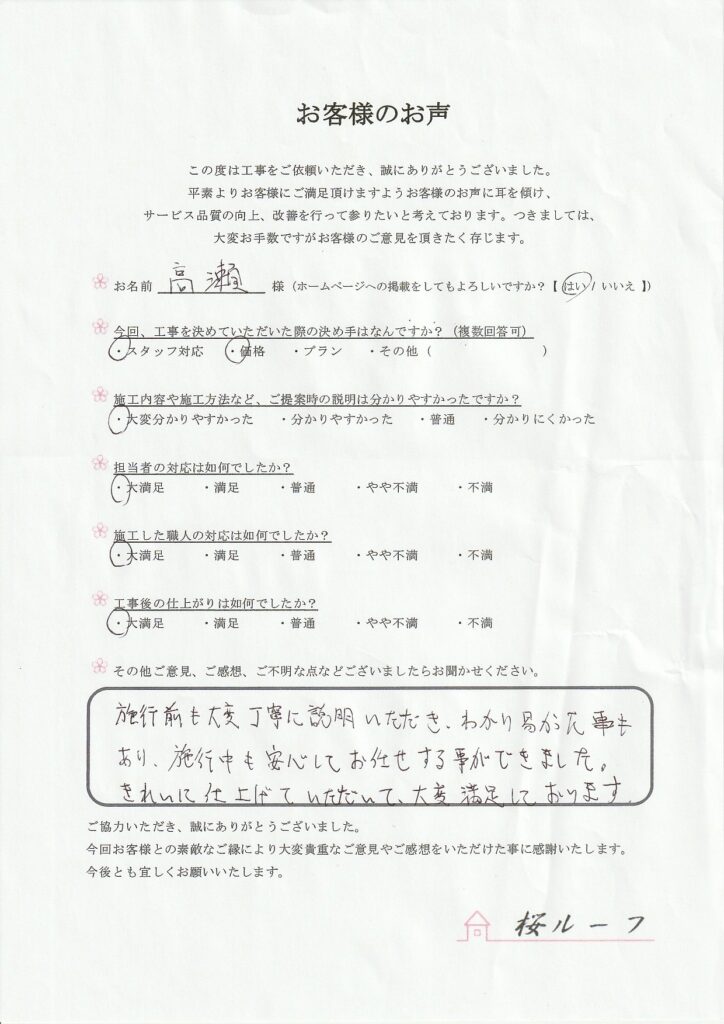 お客様のお声
この度は工事をご依頼いただき、誠にありがとうございました。
平素よりお客様にご満足頂けますようお客様のお声に耳を傾け、
サービス品質の向上、改善を行って参りたいと考えております。つきましては、
大変お手数ですがお客様のご意見を頂きたく存じます。
お名前 高瀬 様（ホームページへの掲載をしてもよろしいですか？【 はい / いいえ 】）
今回、工事を決めていただいた際の決め手はなんですか？（複数回答可）
・スタッフ対応 ・価格 ・プラン ・その他（ ）
施工内容や施工方法など、ご提案時の説明は分かりやすかったですか？
・大変分かりやすかった ・分かりやすかった ・普通 ・分かりにくかった
担当者の対応は如何でしたか？
・大満足 ・満足 ・普通 ・やや不満 ・不満
施工した職人の対応は如何でしたか？
・大満足 ・満足 ・普通 ・やや不満 ・不満
工事後の仕上がりは如何でしたか？
・大満足 ・満足 ・普通 ・やや不満 ・不満
その他ご意見、ご感想、ご不明な点などございましたらお聞かせください。
施行前も大変丁寧に説明いただき、わかり易かた事も
あり、施行中も安心してお任せする事ができました。
きれいに仕上げていただいて、大変満足しております。
ご協力いただき、誠にありがとうございました。
今回お客様との素敵なご縁により大変貴重なご意見やご感想をいただけた事に感謝いたします。
今後とも宜しくお願いいたします。
桜ルーフ